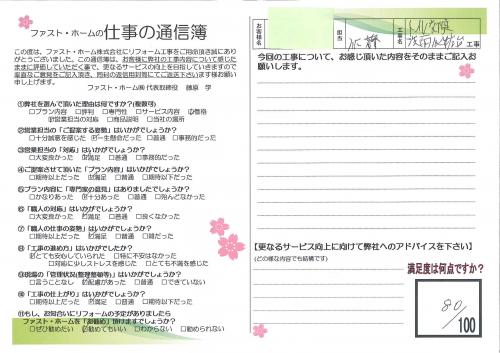 ファスト・ホームの仕事の通信簿
この度は、ファスト・ホーム株式会社にリフォーム工事をご用命頂き誠にあり
がとうございました。この通信簿は、お客様に弊社の工事内容について感じた
ままに評価していただく事で、更なるサービスの向上を目指していきますので
率直なご意見をご記入頂き、同封の返信用封筒にてご送下さいます様お願い
申し上げます。
ファスト・ホーム㈱ 代表取締役 藤原 学
①弊社を選んで頂いた理由は何ですか?(複数可)
□プラン内容 □評判 □専門性 □サービス内容 ☑価格
☑営業担当の対応 □商品説明 □当社の場所
②営業担当の「ご提案する姿勢」はいかがでしょうか?
□十分誠意を感じた ☑一生懸命だった □普通 □事務的だった
③営業担当の「対応」はいかがでしょうか?
□大変良かった ☑満足 □普通 □事務的だった
④ご提案させて頂いた「プラン内容」はいかがでしょうか?
□期待以上だった ☑満足 □普通 □期待以下だった
⑤プラン内容に「専門家の意見」はありましたでしょうか?
□かなりあった ☑十分あった □普通 □殆んどなかった
⑥「職人の対応」はいかがでしょうか?
□大変良かった ☑満足 □普通 □良くなかった
⑦「職人の仕事の姿勢」はいかがでしょうか?
□期待以上だった ☑満足 □普通 □雑だった
⑧「工事の進め方」はいかがでしたか?
☑とても安心していられた □特に不安はなかった
□対応に少しストレスを感じた □とても不満を感じた
⑨現場の「管理状況(整理整頓等)」はいかがでしょうか?
□言うことなし ☑配慮があった □普通 □できていない
⑩「工事の仕上がり」はいかがでしょうか?
□期待以上だった ☑満足だった □普通 □期待以下だった
⑪もし、お知合いにリフォームの予定がありましたら
ファスト・ホームを「お勧め」頂けますでしょうか?
□ぜひ勧めたい ☑勧めてもいい □わからない □勧められない
お客様名
担当
工事名
トイレ交換
工事
今回の工事について、お感じ頂いた内容をそのままご記入お
願いします。
【更なるサービス向上に向けて弊社へのアドバイスを下さい】
(どの様な内容でも結構です)
満足度は何点ですか?
80/
100